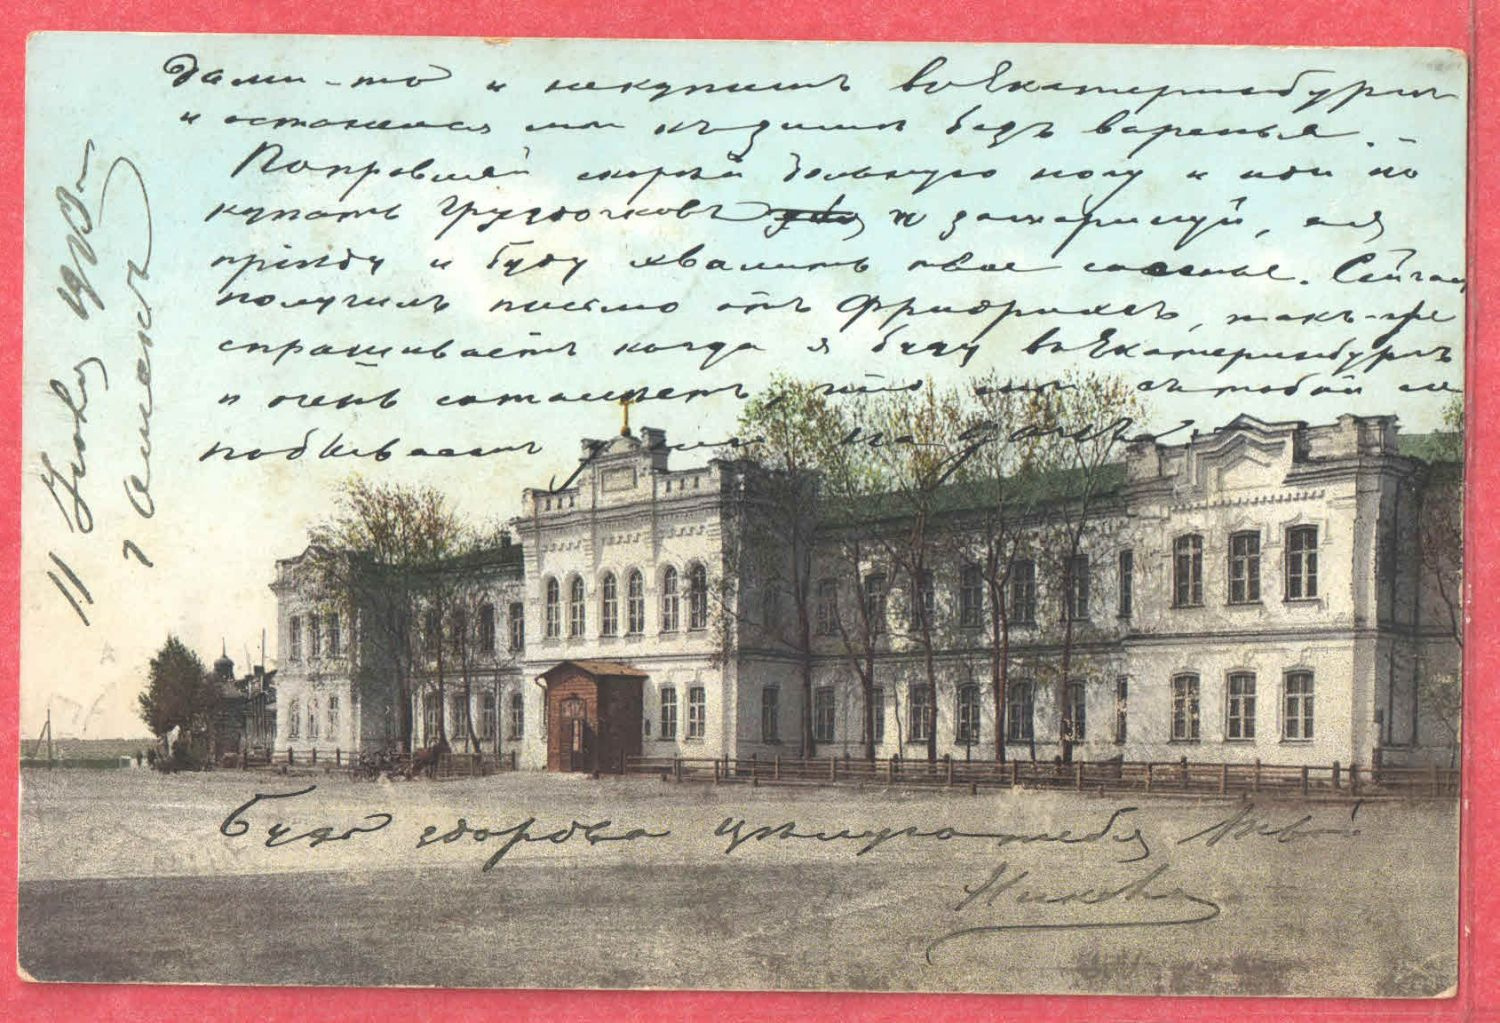 дами-то и некупишь въ Екатеринбургѣ
и останемся мы къ зимѣ безъ варенья. -
Поправляй скорѣй больную ногу и иди по
купать груздочковъ и замаринуй, а я
пріѣду и буду хвалить твое соленье. Сейчас
получилъ письмо отъ Фридрихсъ, такъ-же
спрашиваетъ когда я буду въ Екатеринбургѣ
и очень сожалѣетъ, что мы съ тобой не
побываемъ у них на дачѣ
Будь здорова цѣлую тебя Твой
Николай
11 Іюля 1913 г
г Омскъ